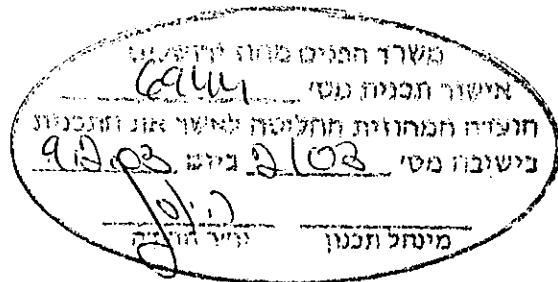 משרד הפנים מחוז ירושלים
אישור תכנית מס׳ 6944
הועדה המחוזית החליטה לאשר את התכנית
בישיבה מס׳ 2/03 ביום 9.2.03
מינהל תכנון יו״ר הועדה